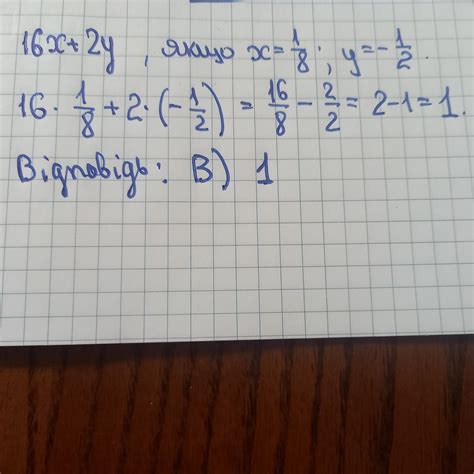 16x+2y, якщо x=1/8; y=-1/2.
16·1/8+2·(-1/2)=16/8-2/2=2-1=1.
Відповідь: В) 1